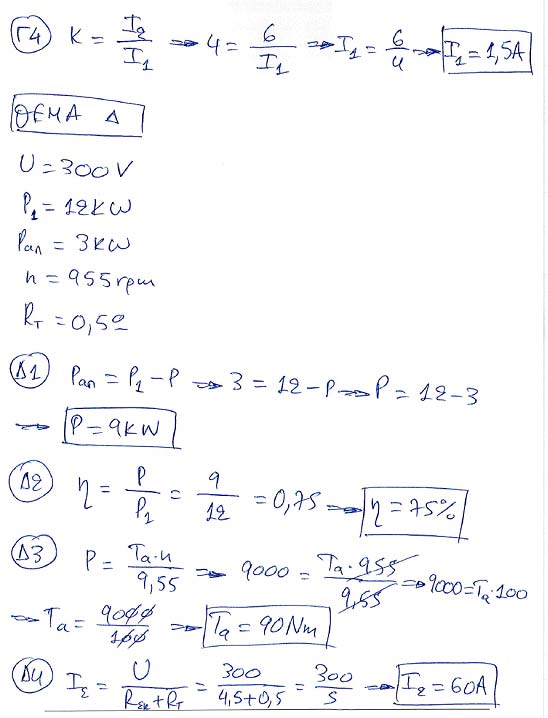 Γ4 K = I2/I1 → 4 = 6/I1 → I1 = 6/4 → I1 = 1,5A
ΘΕΜΑ Δ
U = 300V
P1 = 12KW
Pαπ = 3KW
n = 955rpm
RT = 0,5Ω
Δ1 Pαπ = P1 - P → 3 = 12 - P → P = 12 - 3
→ P = 9KW
Δ2 η = P/P1 = 9/12 = 0,75 → η = 75%
Δ3 P = Ta·n/9,55 → 9000 = Ta·955/9,55 → 9000 = Ta·100
→ Ta = 9000/100 → Ta = 90Nm
Δ4 Iε = U/Rεκ+RT = 300/4,5+0,5 = 300/5 → Iε = 60A